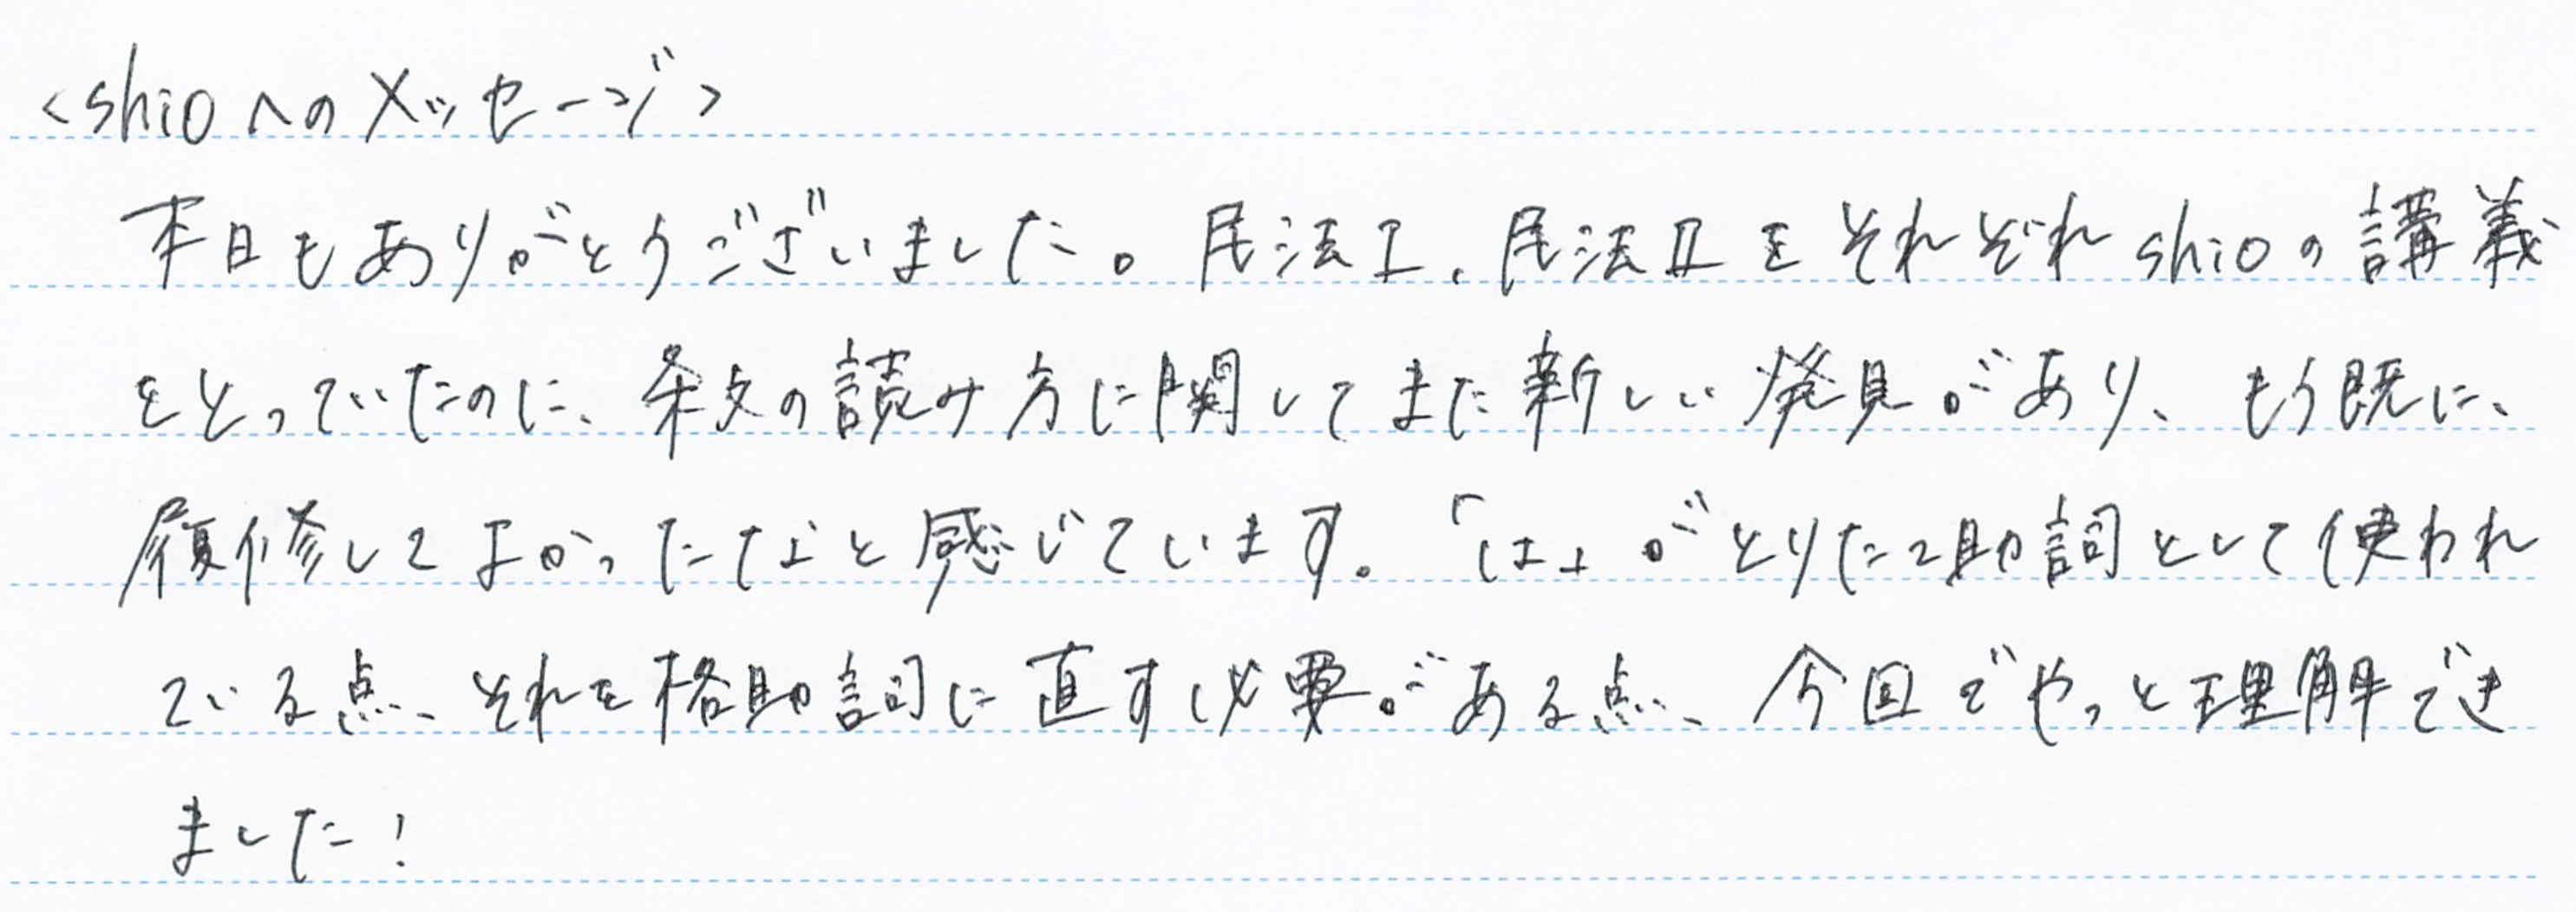 <shioへのメッセージ>
本日もありがとうございました。民法I、民法IIをそれぞれshioの講義
をとっていたのに、条文の読み方に関してまた新しい発見があり、もう既に、
履修してよかったなと感じています。「は」がとりたて助詞として使われ
ている点、それを格助詞に直す必要がある点、今回でやっと理解でき
ました!